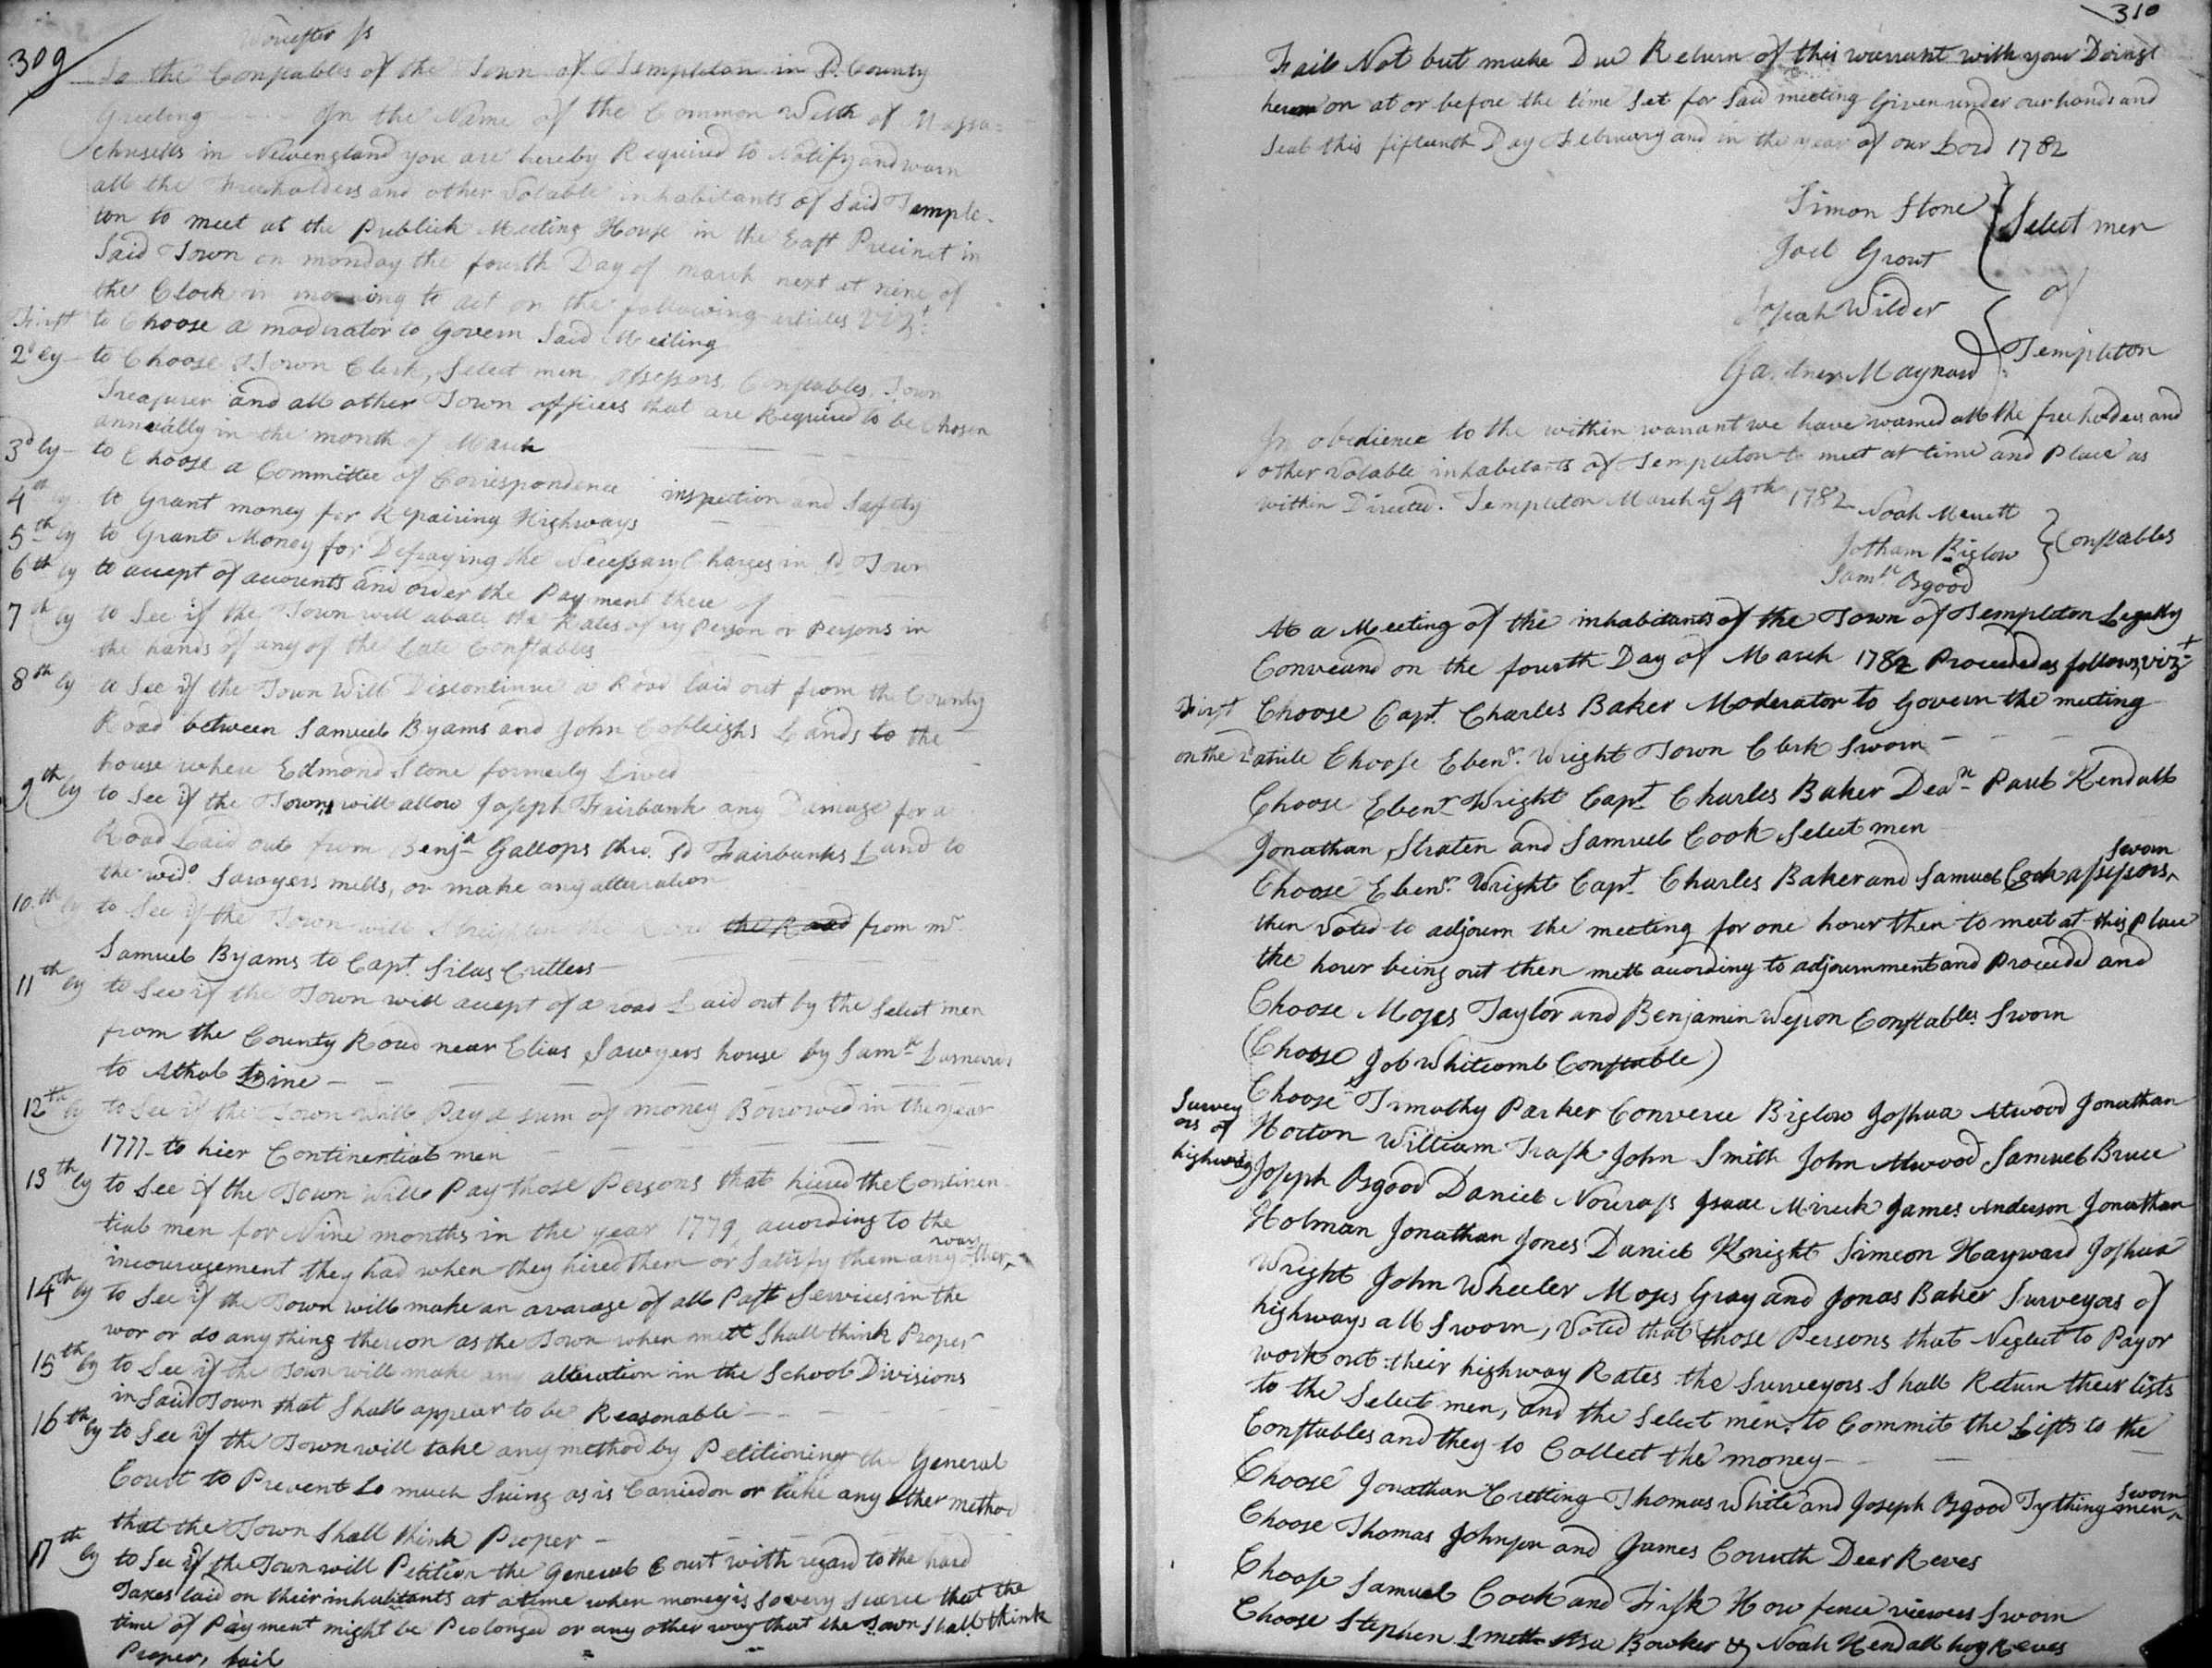 309
Worcester ss
To the Constables of the Town of Templeton in sd. County
Greeting In the Name of the Common Welth of Massa=
chusetts in Newengland you are hereby Required to Notify and warn
all the Freeholders and other Votable inhabitants of Said Temple-
ton to meet at the Publick Meeting House in the East Precinct in
Said Town on monday the fourth Day of march next at nine of
the Clock in morning to act on the following articles Vizt:
First to Choose a moderator to Govern Said Meeting
2dly to Choose Town Clerk, Select men Assessors, Constables, Town
Treasurer and all other Town officers that are Required to be Chosen
annually in the month of March
3dly to Choose a Committee of Correspondence inspection and Safety
4thly to Grant money for Repairing Highways
5thly to Grant Money for Defraying the Necessary Charges in sd Town
6thly to accept of accounts and order the Payment there of
7thly to See if the Town will abate the Rates of any Person or Persons in
the hands of any of the Late Constables
8thly to See if the Town Will Discontinue a Road laid out from the County
Road between Samuel Byams and John Cobleighs Lands to the
house where Edmond Stone formerly Lived
9thly to See if the Town will allow Joseph Fairbank any Damage for a
Road Laid out from Benja Gallops thro. sd Fairbanks Land to
the wido Sawyers mills, or make any alteration
10thly to See if the Town will Streighten the Road the Road from mr
Samuel Byams to Capt. Silas Cutlers
11thly to See if the Town will accept of a road Laid out by the Select men
from the County Road near Elias Sawyers house by Samll
to Athol Line
12thly to See if the Town Will Pay a sum of money Borrowed in the year
1777 to hier Continential men
13thly to See if the Town Will Pay those Persons that hiered the Continen-
tial men for Nine months in the year 1779, acuording to the
incouragement they had when they hired them or Satisfy them any other way
14thly to See if the Town will make an avarage of all Past Services in the
wor or do any thing thereon as the Town when mett Shall think Proper
15thly to See if the Town will make any alteration in the School Divisions
in Said Town that Shall appear to be Reasonable
16thly to See if the Town will take any method by Petitioning the General
Court to Prevent So much Suing as is Carried on or take any other method
that the Town Shall think Proper
17thly to See if the Town will Petition the General Court with regard to the hard
Taxes laid on their inhabitants at a time when money is So very scarce that the
time of Payment might be Prolonged or any other way that the Town Shall think
Proper, fail
310
Fail Not but make Due Return of this warrant with your Doings
hereon at or before the time Set for Said meeting Given under our hands and
Seal this fifteenth Day February and in the year of our Lord 1782
Simon Stone
Joel Grout
Josiah Wilder
Gardner Maynard
Select men
of
Templeton
In obedience to the within warrant we have warned all the free holders and
other Votable inhabitants of Templeton to meet at time and Place as
within Directed. Templeton March ye 4th 1782
Noah Merrett
Jotham Biglow
Samll Osgood
Constables
At a Meeting of the inhabitants of the Town of Templeton Legally
Conveand on the fourth Day of March 1782 Proceeded as follows, vizt
First Choose Capt. Charles Baker Moderator to Govern the meeting
on the 2d article Choose Ebenr. Wright Town Clerk Sworn
Choose Ebenr Wright Capt Charles Baker Dean Paul Kendall
Jonathan Straten and Samuel Cook Select men
Choose Ebenr. Wright Capt. Charles Baker and Samuel Cook assessors, Sworn
then Voted to adjourn the meeting for one hour then to meet at this Place
the hour being out then mett acuording to adjournment and Proceded and
Choose Moses Taylor and Benjamin Wesson Constables Sworn
(Choose Job Whitcomb Constable)
Surveyors of highways
Choose Timothy Parker Converce Biglow Joshua Atwood Jonathan
Horton William Trask John Smith John Atwood Samuel Bruce
Joseph Osgood Daniel Norcross Isaac Mirick James Anderson Jonathan
Holman Jonathan Jones Daniel Knight Simeon Hayward Joshua
Wright John Wheeler Moses Gray and Jonas Baker Surveyors of
highways all Sworn, Voted that those Persons that Neglect to Pay or
work out their highway Rates the Surveyors Shall Return their lists
to the Select men, and the Select men to Commit the Lists to the
Constables and they to Collect the money
Choose Jonathan Cutting Thomas White and Joseph Osgood Tything men, Sworn
Choose Thomas Johnson and James Couruth Deer Reves
Choose Samuel Cook and Fisk How fence viewers Sworn
Choose Stephen Smith Asa Bowker & Noah Kendall hog Reves